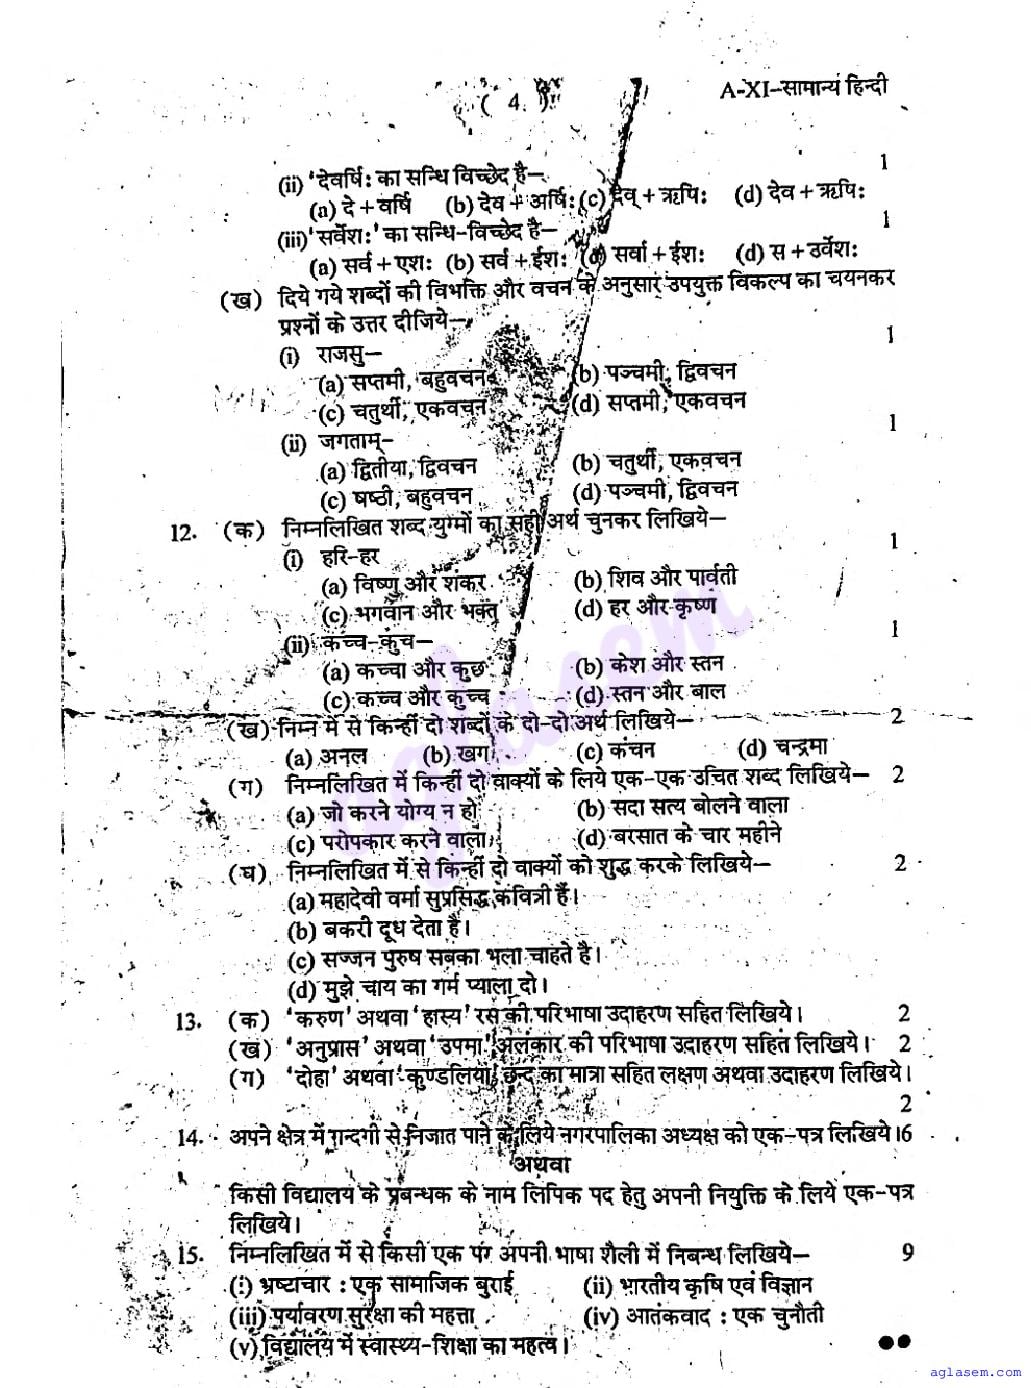 ( 4 )
A-XI-सामान्य हिन्दी
(ii) 'देवर्षिः का सन्धि विच्छेद है– 1
(a) दे + वर्षि (b) देव + अर्षिः (c) देव् + ऋषिः (d) देव + ऋषिः
(iii) 'सर्वेशः' का सन्धि-विच्छेद है– 1
(a) सर्व + एशः (b) सर्व + ईशः (c) सर्वा + ईशः (d) स + र्वेशः
(ख) दिये गये शब्दों की विभक्ति और वचन के अनुसार उपयुक्त विकल्प का चयनकर
प्रश्नों के उत्तर दीजिये–
(i) राजसु– 1
(a) सप्तमी, बहुवचन (b) पञ्चमी, द्विवचन
(c) चतुर्थी, एकवचन (d) सप्तमी, एकवचन
(ii) जगताम्– 1
(a) द्वितीया, द्विवचन (b) चतुर्थी, एकवचन
(c) षष्ठी, बहुवचन (d) पञ्चमी, द्विवचन
12. (क) निम्नलिखित शब्द युग्मों का सही अर्थ चुनकर लिखिये–
(i) हरि-हर 1
(a) विष्णु और शंकर (b) शिव और पार्वती
(c) भगवान और भक्त (d) हर और कृष्ण
(ii) कच्च-कुच– 1
(a) कच्चा और कुछ (b) केश और स्तन
(c) कच्च और कुच्च (d) स्तन और बाल
(ख) निम्न में से किन्हीं दो शब्दों के दो-दो अर्थ लिखिये– 2
(a) अनल (b) खग (c) कंचन (d) चन्द्रमा
(ग) निम्नलिखित में किन्हीं दो वाक्यों के लिये एक-एक उचित शब्द लिखिये– 2
(a) जो करने योग्य न हो (b) सदा सत्य बोलने वाला
(c) परोपकार करने वाला (d) बरसात के चार महीने
(घ) निम्नलिखित में से किन्हीं दो वाक्यों को शुद्ध करके लिखिये– 2
(a) महादेवी वर्मा सुप्रसिद्ध कवित्री हैं।
(b) बकरी दूध देता है।
(c) सज्जन पुरुष सबका भला चाहते है।
(d) मुझे चाय का गर्म प्याला दो।
13. (क) 'करुण' अथवा 'हास्य' रस की परिभाषा उदाहरण सहित लिखिये। 2
(ख) 'अनुप्रास' अथवा 'उपमा' अलंकार की परिभाषा उदाहरण सहित लिखिये। 2
(ग) 'दोहा' अथवा 'कुण्डलिया' छन्द का मात्रा सहित लक्षण अथवा उदाहरण लिखिये।
2
14. अपने क्षेत्र में गन्दगी से निजात पाने के लिये नगरपालिका अध्यक्ष को एक-पत्र लिखिये। 6
अथवा
किसी विद्यालय के प्रबन्धक के नाम लिपिक पद हेतु अपनी नियुक्ति के लिये एक-पत्र
लिखिये।
15. निम्नलिखित में से किसी एक पर अपनी भाषा शैली में निबन्ध लिखिये– 9
(i) भ्रष्टाचार : एक सामाजिक बुराई (ii) भारतीय कृषि एवं विज्ञान
(iii) पर्यावरण सुरक्षा की महत्ता (iv) आतंकवाद : एक चुनौती
(v) विद्यालय में स्वास्थ्य-शिक्षा का महत्व।
aglasem
aglasem.com